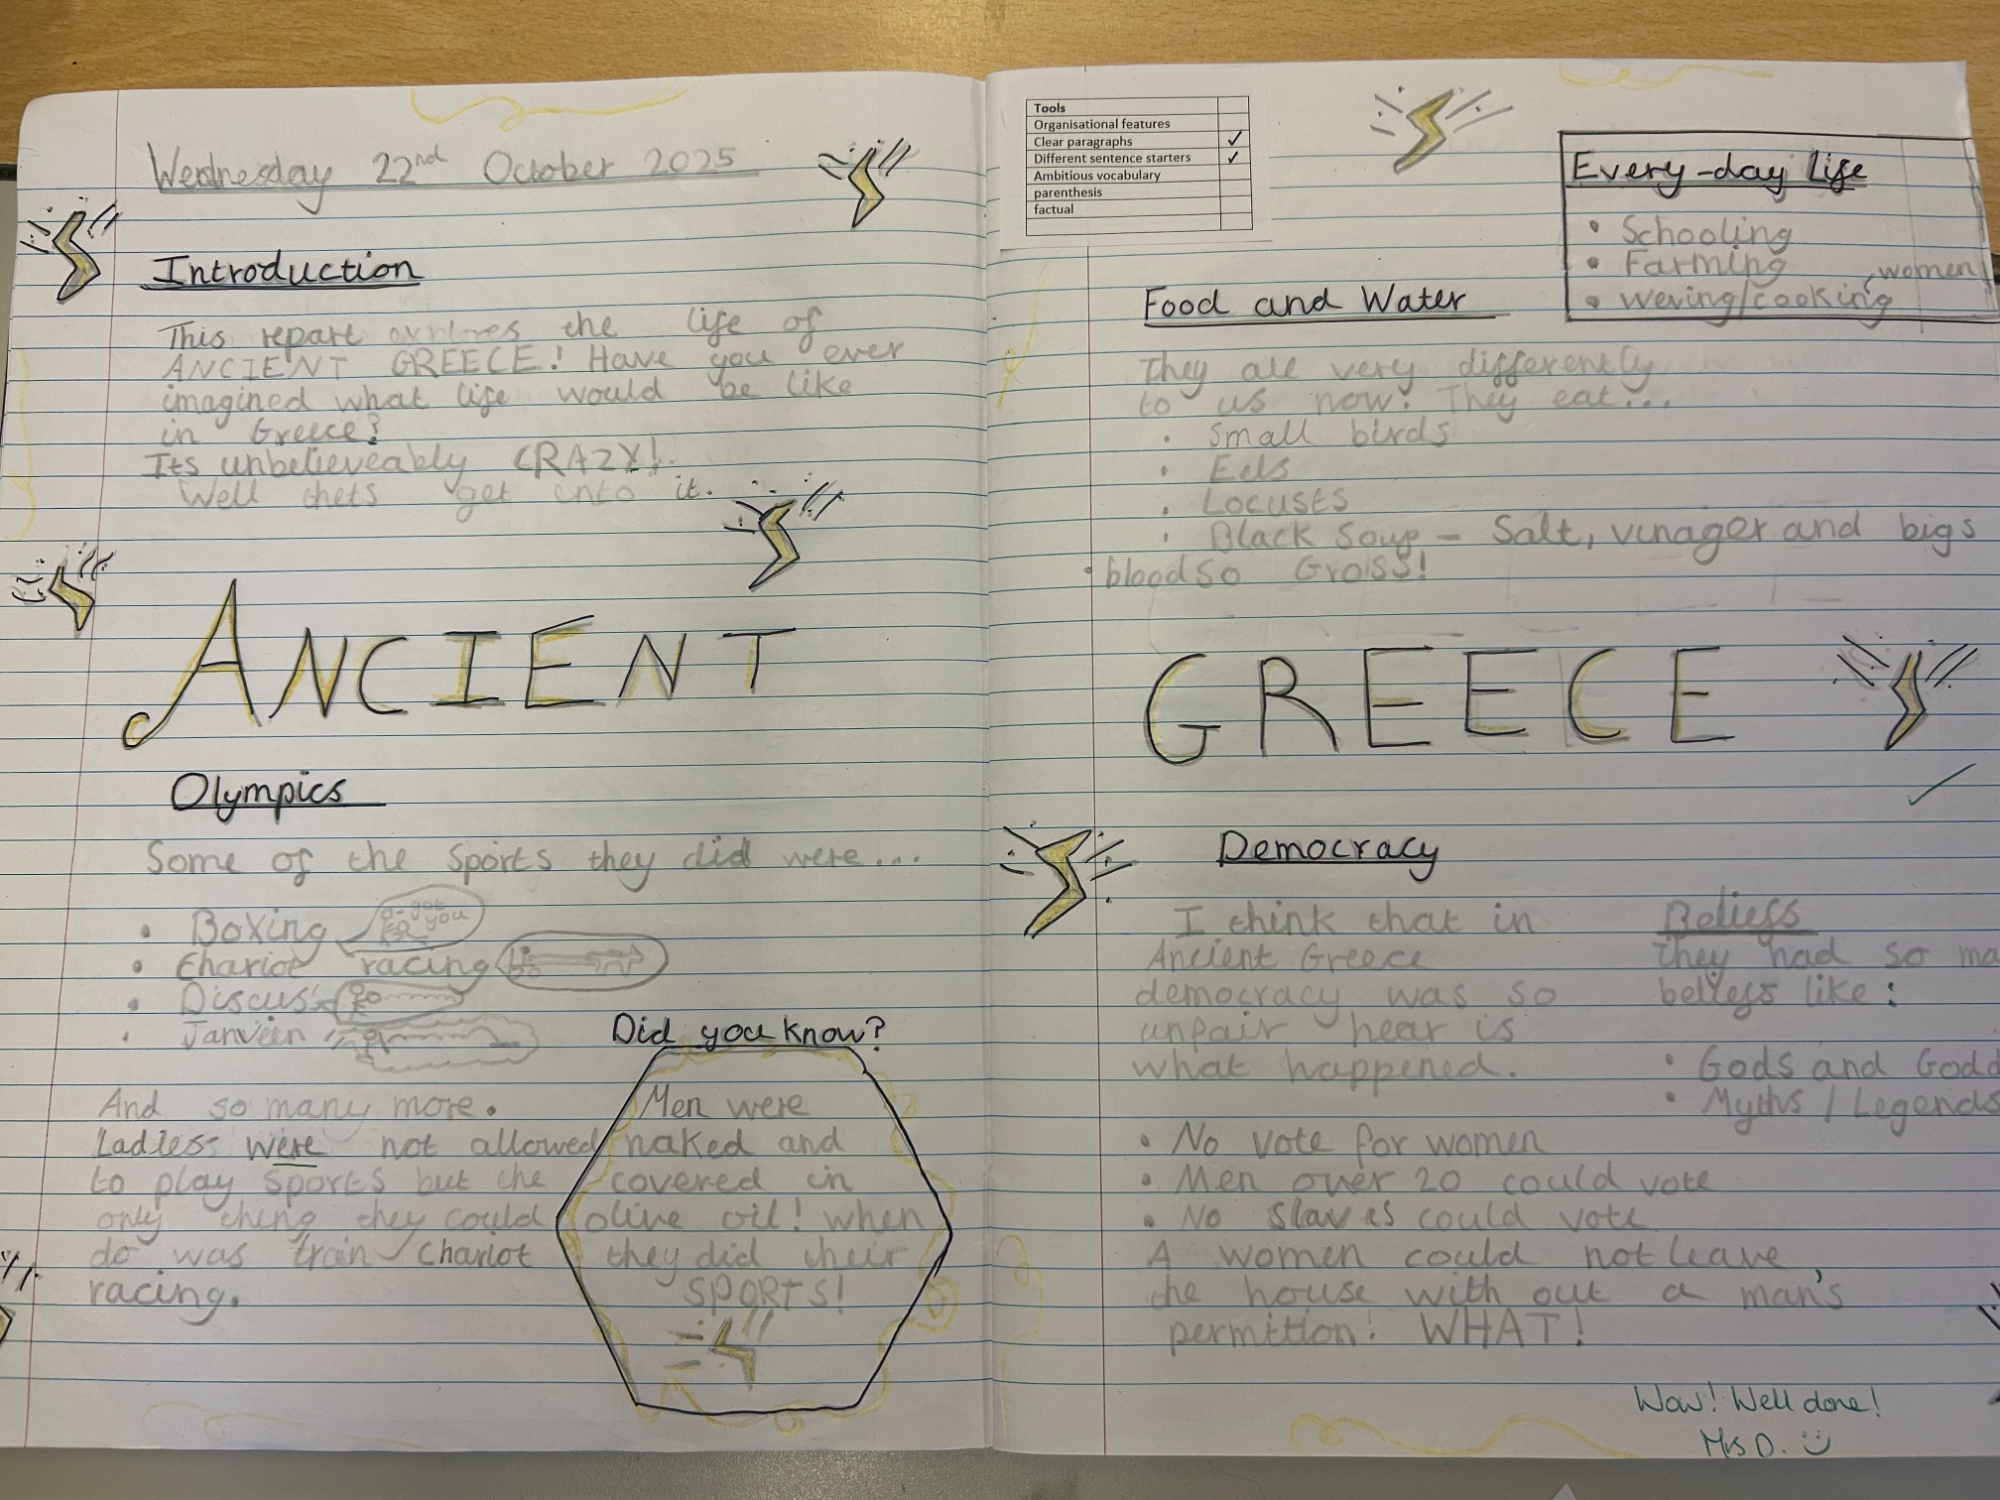 Wednesday 22nd October 2025
Introduction
This repart explores the life of
ANCIENT GREECE! Have you ever
imagined what life would be like
in Greece?
Its unbelieveably CRAZY!
Well thets get into it.
ANCIENT
Olympics
Some of the sports they did were...
• Boxing
got you
• Chariot racing
• Discus
• Janvein
And so many more.
Ladless were not allowed
to play sports but the
only thing they could
do was train chariot
racing.
Did you know?
Men were
naked and
covered in
olive oil! when
they did their
SPORTS!
Tools
Organisational features
Clear paragraphs ✓
Different sentence starters ✓
Ambitious vocabulary
parenthesis
factual
Every-day life
• Schooling
• Farming
• wering/cooking, women
Food and Water
They all very differently
to us now! They eat...
• Small birds
• Eels
• Locusts
• Black Soup - Salt, vinager and bigs
blood so Gross!
GREECE
Democracy
I think that in
Ancient Greece
democracy was so
unfair hear is
what happened.
• No vote for women
• Men over 20 could vote
• No slaves could vote
A women could not leave
the house with out a man's
permition! WHAT!
Beliefs
They had so ma
beliefs like:
• Gods and Godd
• Myths / Legends
Wow! Well done!
Mrs D.